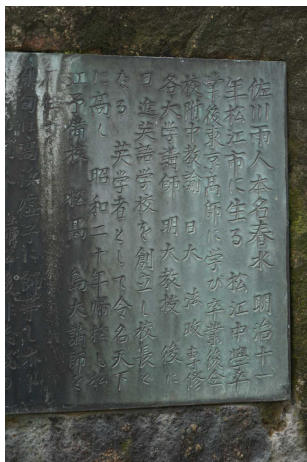 佐川雨人本名春水 明治十一
年松江市に生る 松江中学卒
業後東京高師に学び卒業後仝
校附中教諭 日大 法政専修
各大学講師 明大教授 後に
日進英語学校を創立し校長と
なる 英学者として令名天下
に高し 昭和二十年帰松し松
江予備校 松高 島大講師を